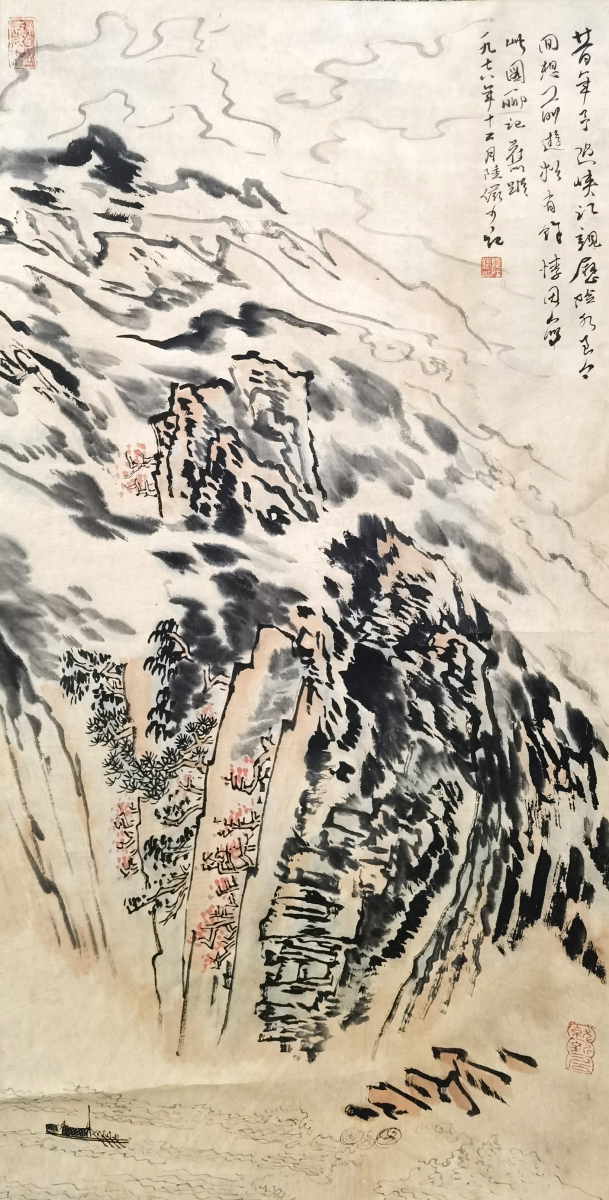 昔年予過峽江親歷險水至今
回想前遊猶有餘悸因寫
此圖聊記舊蹤
一九七六年十二月陸儼少記